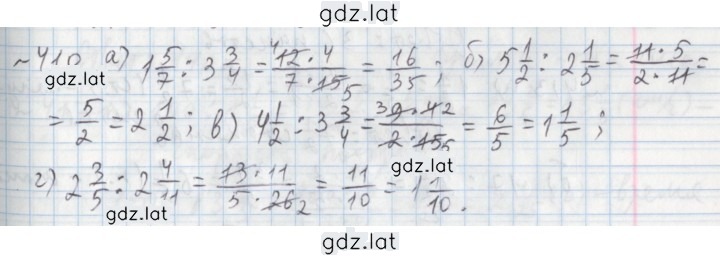 gdz.lat
~410 а) 1 5/7 : 3 3/4 = 12·4/7·15 5 = 16/35; б) 5 1/2 : 2 1/5 = 11·5/2·11 =
gdz.lat
= 5/2 = 2 1/2; в) 4 1/2 : 3 3/4 = 3 9·4 2/2·15 5 = 6/5 = 1 1/5;
gdz.lat
г) 2 3/5 : 2 4/11 = 13·11/5·26 2 = 11/10 = 1 1/10.
gdz.lat
gdz.lat